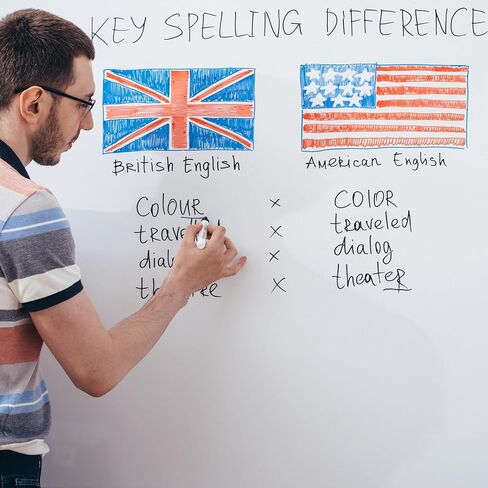 KEY SPELLING DIFFERENCE
British English American English
COLOUR × COLOR
× traveled
× dialog
× theater